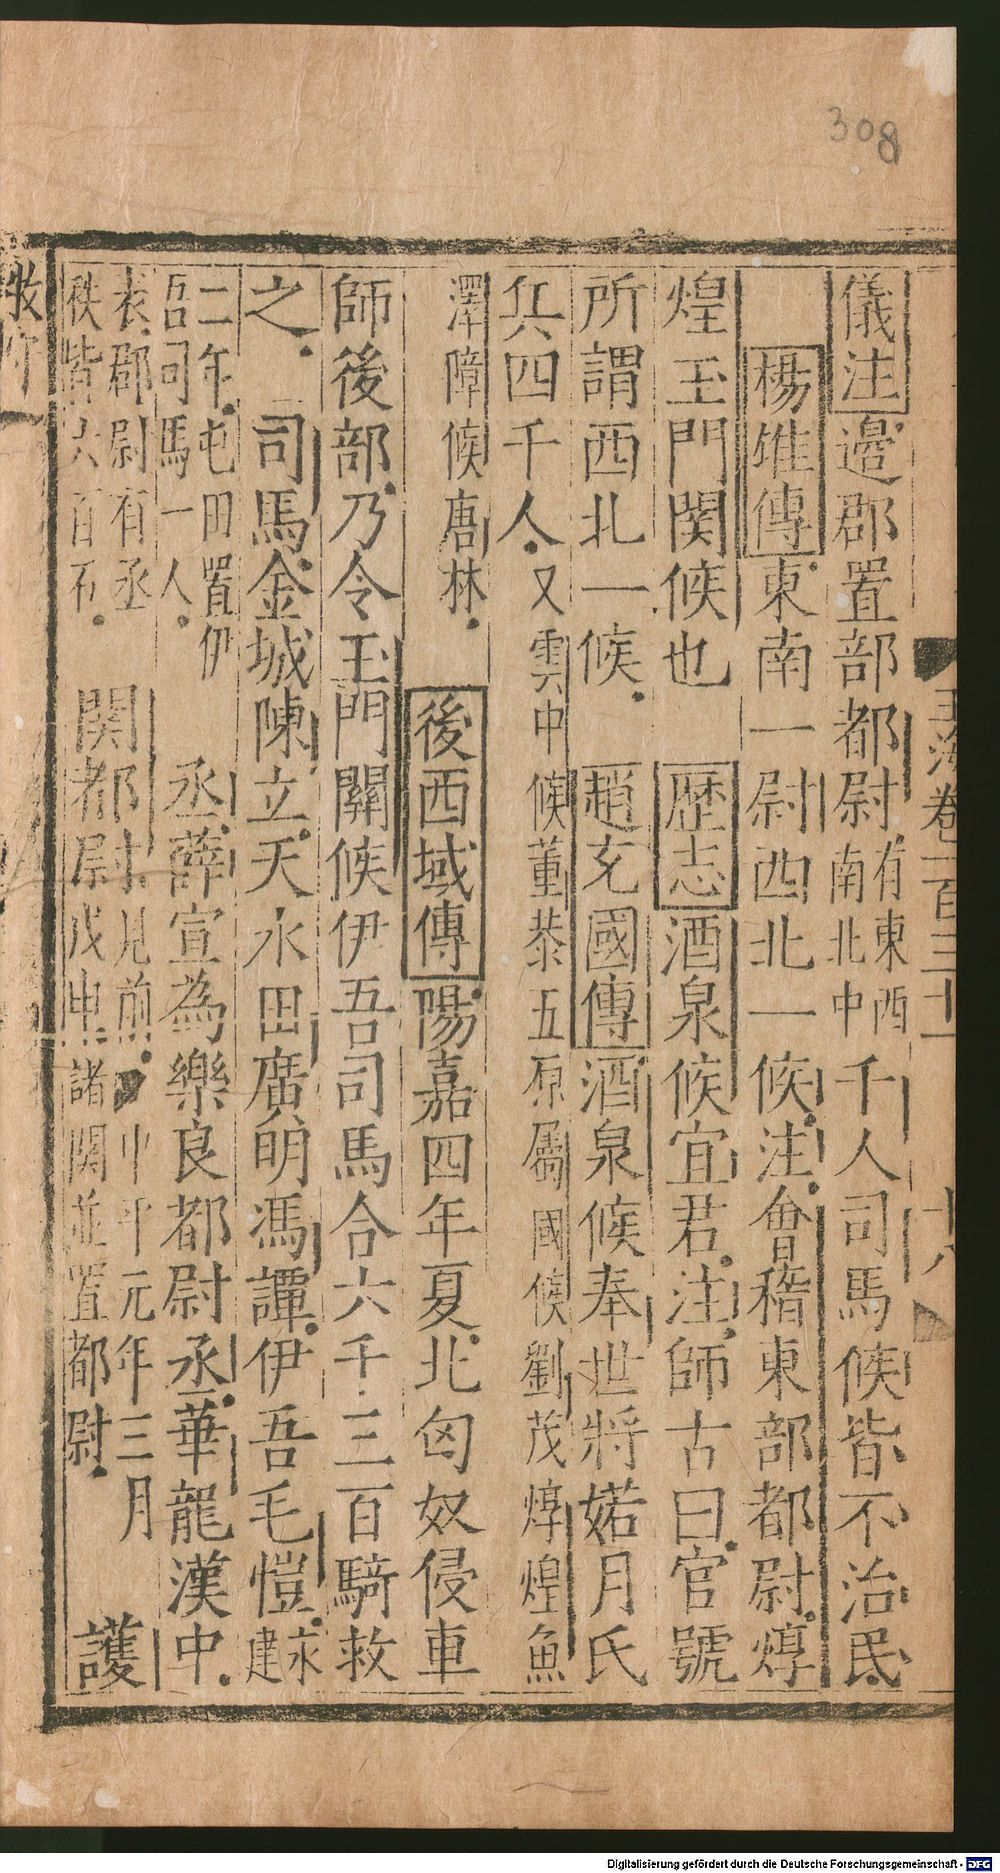 308
玉海卷一百三十一
十八
儀注邊郡置部都尉有東西南北中千人司馬候皆不治民
楊雄傳東南一尉西北一候注會稽東部都尉煇
煌玉門関候也歴志酒泉候宜君注師古曰官號
所謂西北一候趙充國傳酒泉候奉世將婼月氏
兵四千人又雲中候董恭五原屬國候劉茂焞煌魚
澤障候唐林後西域傳陽嘉四年夏北匈奴侵車
師後部乃令玉門關候伊吾司馬合六千三百騎救
之司馬金城陳立天水田廣明馮譚伊吾毛愷永建
二年屯田置伊吾司馬一人丞薛宣為樂良都尉丞華龍漢中
表郡尉有丞秩皆六百石関都尉見前中平元年三月戊申諸関並置都尉護
Digitalisierung gefördert durch die Deutsche Forschungsgemeinschaft - DFG